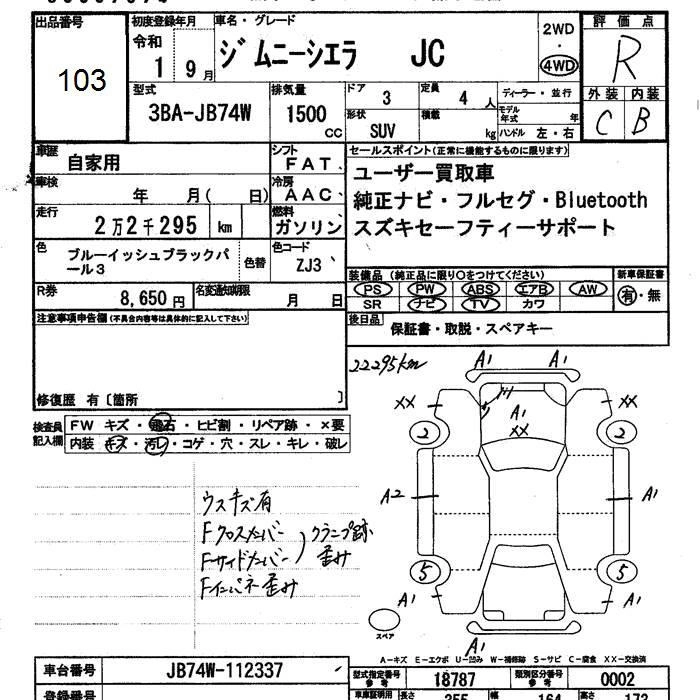 出品番号
103
初度登録年月
令和
1 9月
車名・グレード
ジムニーシエラ JC
2WD
・
4WD
評価点
R
外装 内装
C B
型式
3BA-JB74W
排気量
1500
cc
ドア
3
定員
4 人
ディーラー・並行
形状
SUV
積載
kg
モデル年式
年
ハンドル 左・右
車歴
自家用
シフト
FAT
車検
年 月( 日)
冷房
AAC
走行
2万2千295 km
燃料
ガソリン
色
ブルーイッシュブラックパール3
色替
色コード
ZJ3
R券
8,650円
名変通知期限
月 日
セールスポイント(正常に機能するものに限ります)
ユーザー買取車
純正ナビ・フルセグ・Bluetooth
スズキセーフティーサポート
装備品 (純正品に限り○をつけてください)
新車保証書
PS PW ABS エアB AW
SR ナビ TV カワ
有・無
後日品
保証書・取説・スペアキー
注意事項申告欄(不具合内容等は具体的に記入して下さい)
修復歴 有〔箇所 〕
検査員記入欄
FW キズ・飛石・ヒビ割・リペア跡・×要
内装 キズ・汚レ・コゲ・穴・スレ・キレ・破レ
22295km
A1 A1
XX XX
A1
XX
2 2
A2 A1
5 5
A1 A1
A1
スペア
ウスキズ有
Fクロスメンバー
Fサイドメンバー
クランプ跡
歪み
Fインパネ歪み
A-キズ E-エクボ U-凹み W-補修跡 S-サビ C-腐食 XX-交換済
車台番号
JB74W-112337
型式指定番号
参考
18787
類別区分番号
参考
0002
登録番号
車車証明用
長さ
355
幅
164
高さ
172